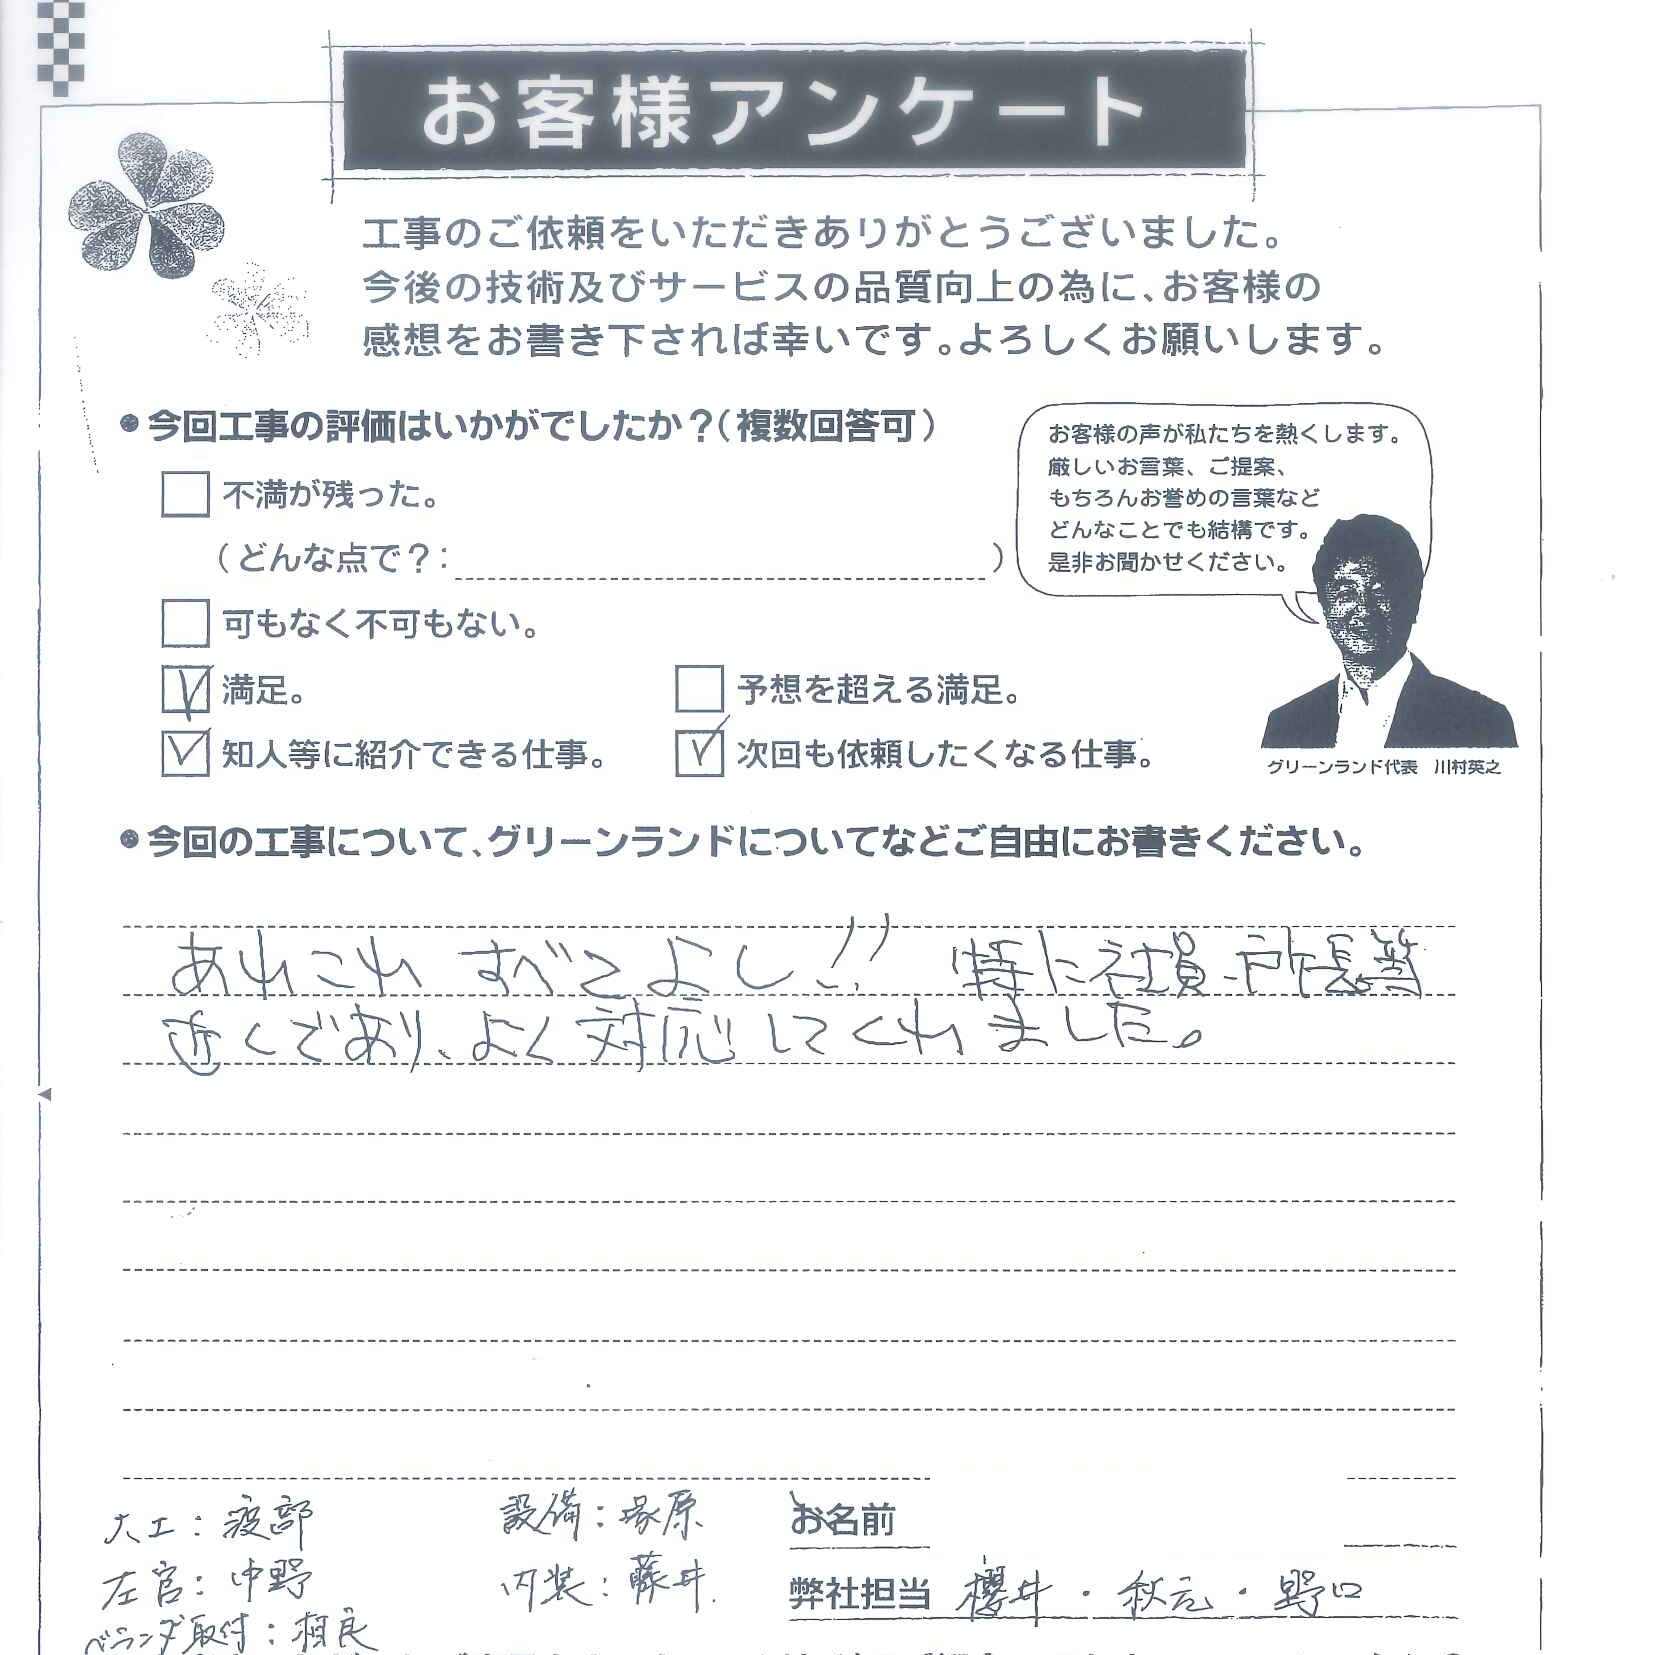 お客様アンケート
工事のご依頼をいただきありがとうございました。
今後の技術及びサービスの品質向上の為に、お客様の
感想をお書き下されば幸いです。よろしくお願いします。
●今回工事の評価はいかがでしたか？（複数回答可）
不満が残った。
（どんな点で？：　　　）
可もなく不可もない。
満足。
予想を超える満足。
知人等に紹介できる仕事。
次回も依頼したくなる仕事。
お客様の声が私たちを熱くします。
厳しいお言葉、ご提案、
もちろんお誉めの言葉など
どんなことでも結構です。
是非お聞かせください。
グリーンランド代表　川村英之
●今回の工事について、グリーンランドについてなどご自由にお書きください。
あれこれ すべてよし!! 特に社員、所長等
近くであり、よく対応してくれました。
大工：渡部
設備：塚原
お名前
左官：中野
内装：藤井
弊社担当 櫻井・秋元・野口
ベランダ取付：相良